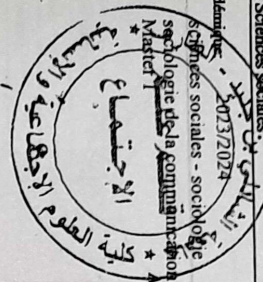 Sciences sociales
démique 2023/2024
sciences sociales - sociologie
sociologie de la communication
Master I
كلية العلوم الاجتماعية و الإنسانية
الاجتماع